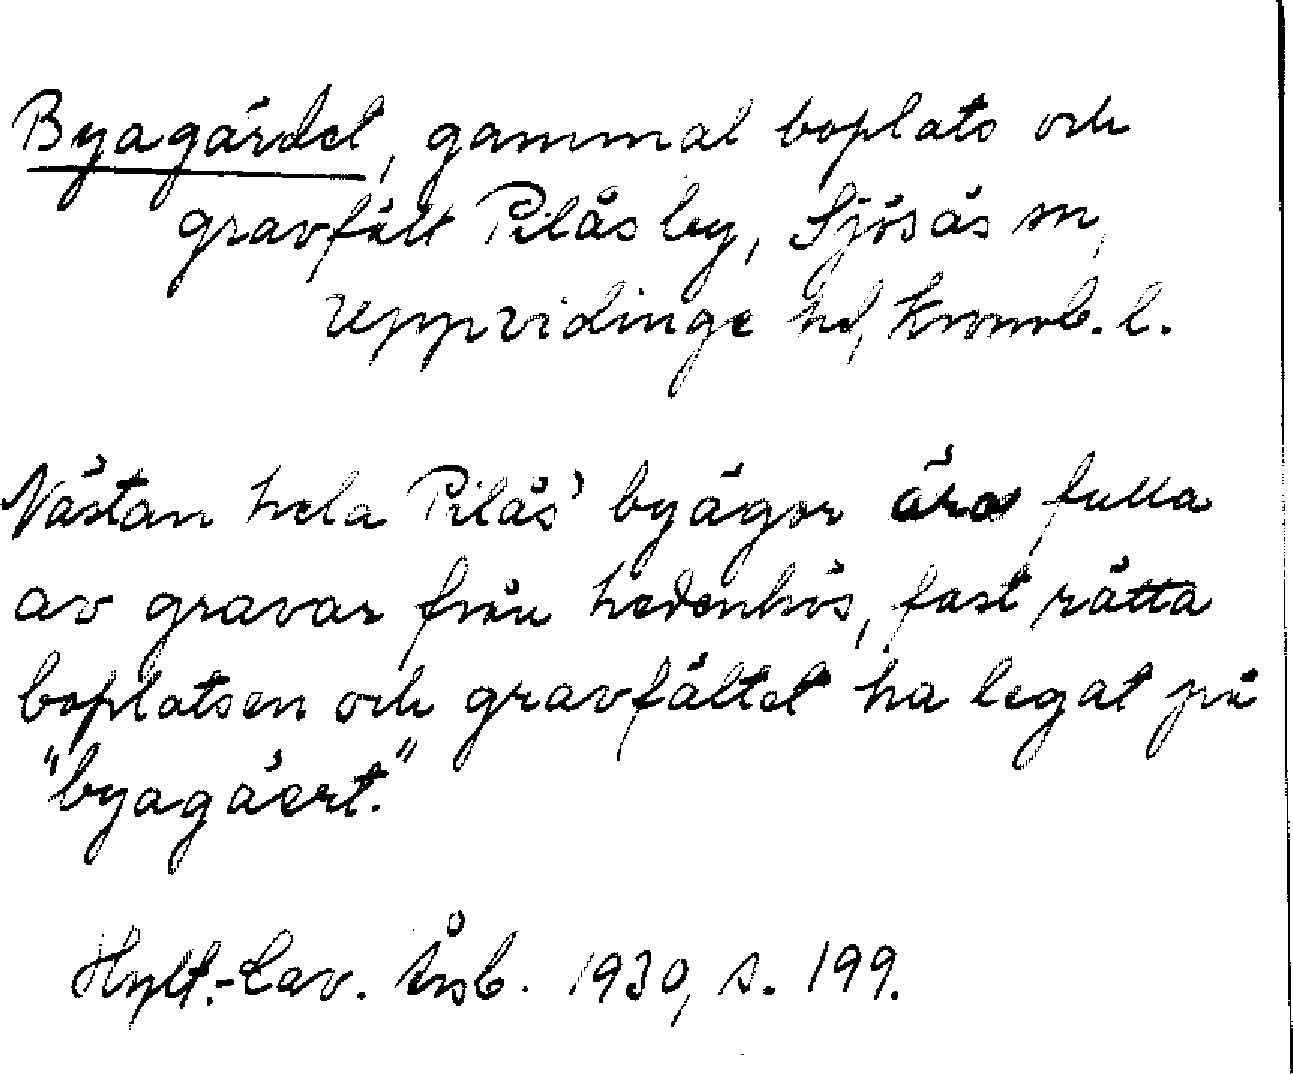 Byagärdet, gammal boplats och
gravfält Pilås by, Sjösås sn,
Uppvidinge hd, Kronob. l.
Nästan hela Pilås' byägor äro fulla
av gravar från hedenhös, fast rätta
boplatsen och gravfältet ha legat på
"byagäert."
Hylt.-Cav. årsb. 1930, s. 199.